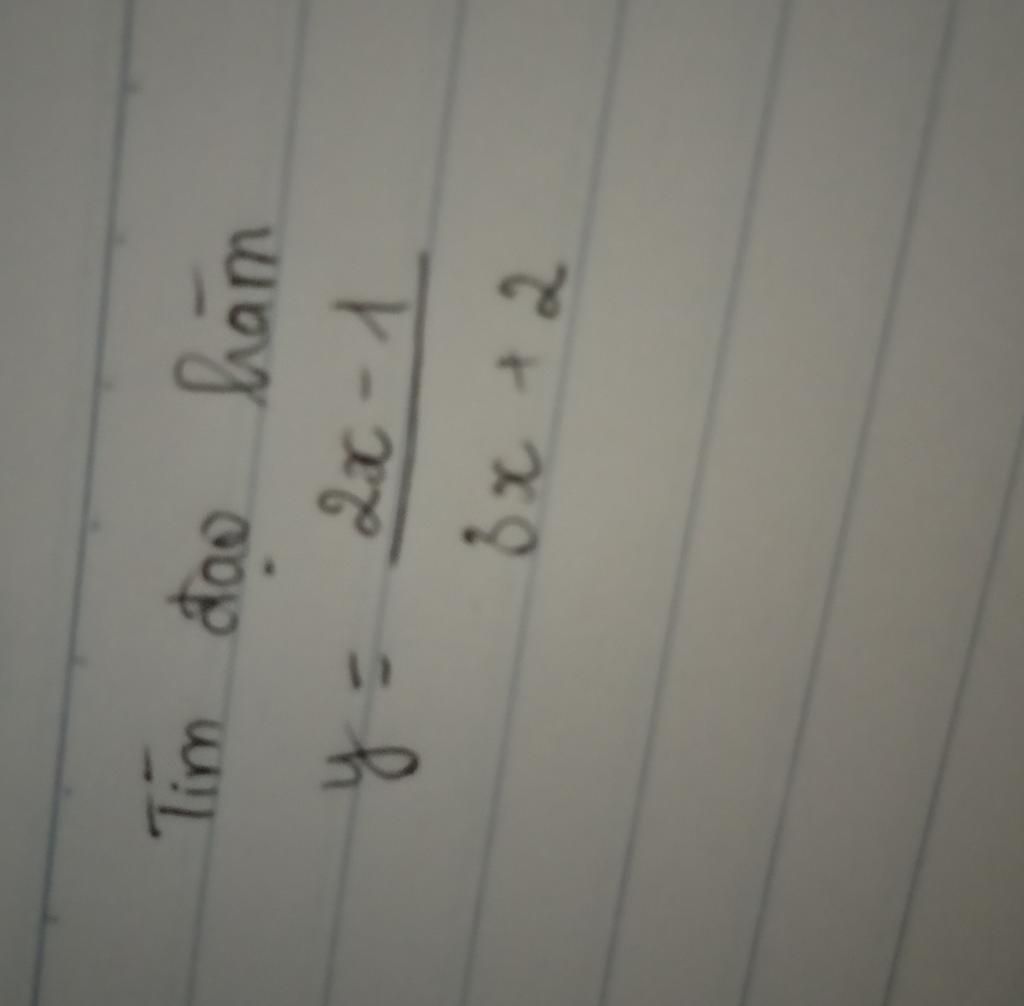 Tìm đạo hàm
y = 2x - 1
3x + 2